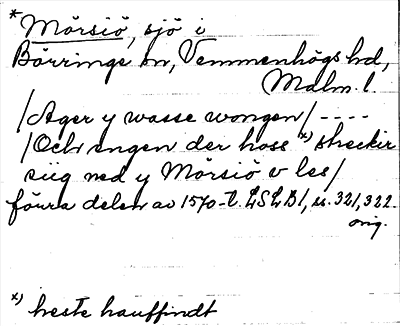 *Mörsiö, sjö i
Börringe sn, Vemmenhögs hd,
Malm. l.
/Ager y wasse wongen/ ----
/Och engen der hoss x) streckir
siig ned y Mörsiö v les/
förra delen av 1570-t. LSLB1, s. 321, 322.
orig.
x) heste hauffindt